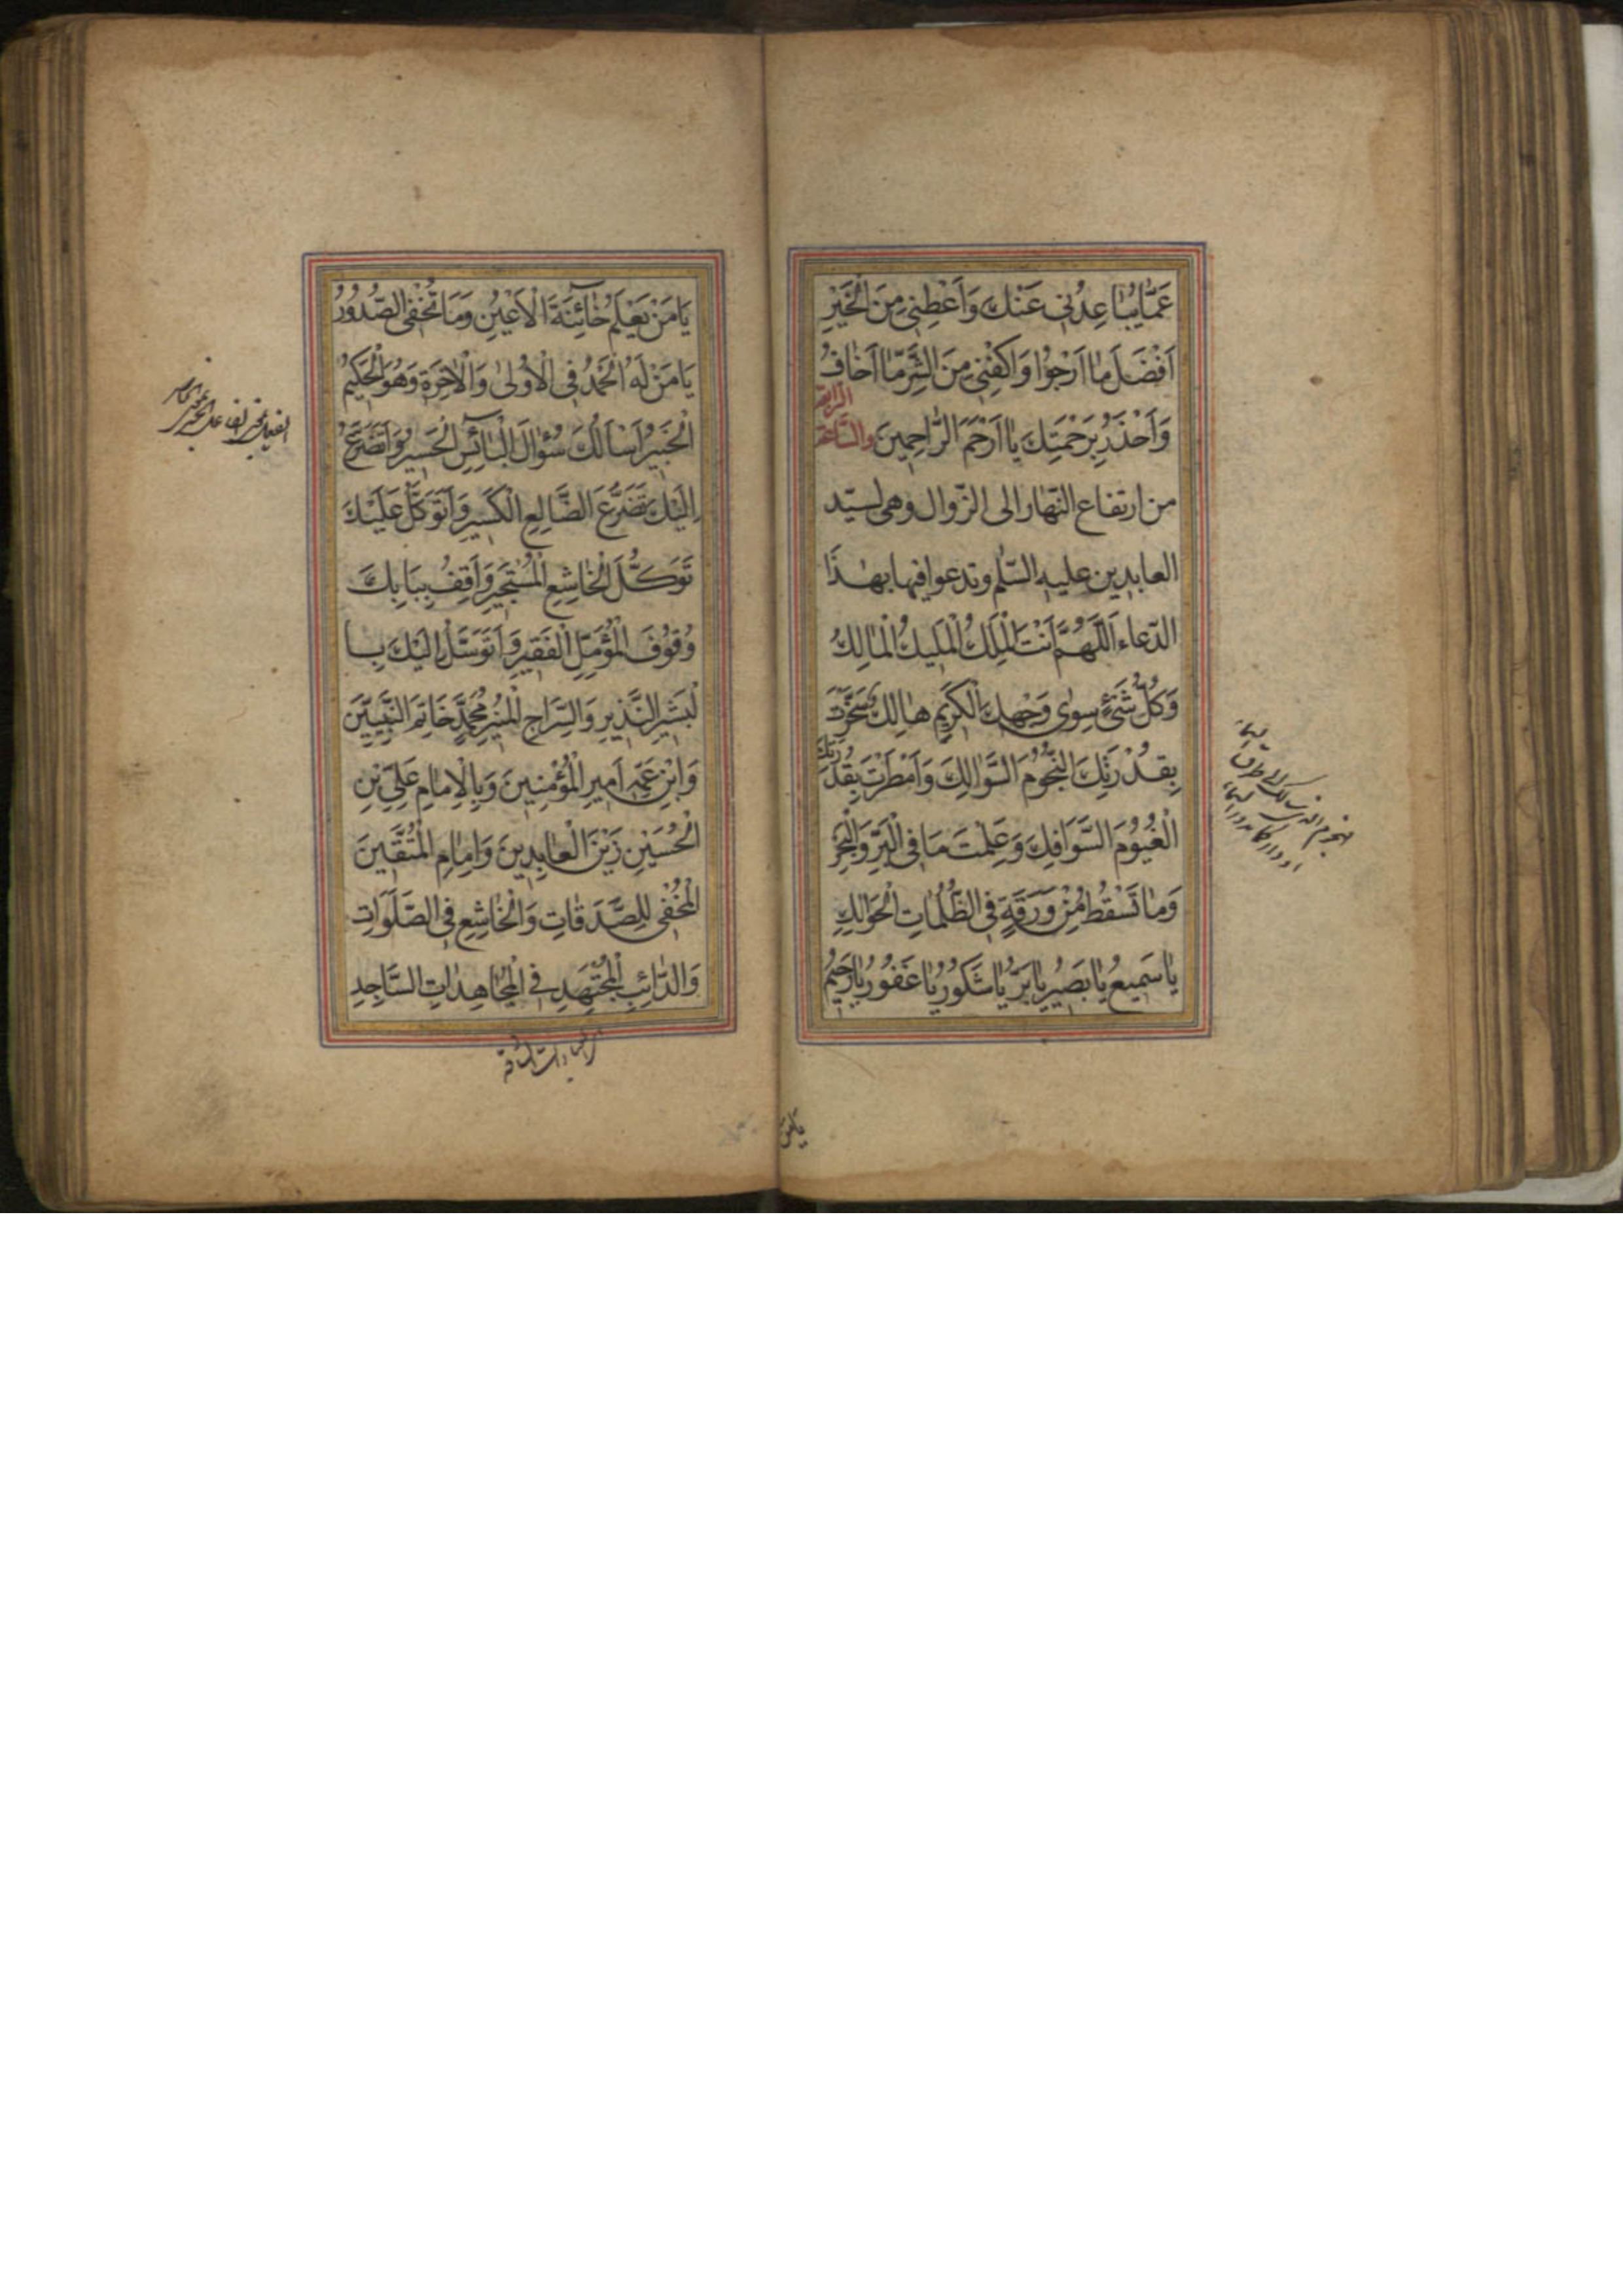 عَمَّا يُبَاعِدُنِي عَنْكَ وَاَعْطِنِي مِنَ الْخَيْرِ
اَفْضَلَ مَا اَرْجُوا وَاكْفِنِي مِنَ الشَّرِّ مَا اَخَافُ
وَاَحْذَرُ بِرَحْمَتِكَ يَا اَرْحَمَ الرَّاحِمِينَ والسّاعة الرابعة
من ارتفاع النّهار الى الزّوال وهى لسيّد
العابدين عليه السّلم وتدعوا فيها بهذَا
الدّعاء اَللّٰهُمَّ اَنْتَ الْمَلِكُ الْمَلِيكُ الْمَالِكُ
وَكُلُّ شَيْءٍ سِوٰى وَجْهِكَ الْكَرِيمِ هٰالِكٌ سَخَّرْتَ
بِقُدْرَتِكَ النُّجُومَ السَّوَالِكَ وَاَمْطَرْتَ بِقُدْرَتِكَ
الْغُيُومَ السَّوَافِكَ وَعَلِمْتَ مَا فِي الْبَرِّ وَالْبَحْرِ
وَمَا تَسْقُطُ مِنْ وَرَقَةٍ فِي الظُّلُمَاتِ الْحَوَالِكِ
يَا سَمِيعُ يَا بَصِيرُ يَا بَرُّ يَا شَكُورُ يَا غَفُورُ يَا رَحِيمُ
يَا مَنْ
يَا مَنْ يَعْلَمُ خَائِنَةَ الْاَعْيُنِ وَمَا تُخْفِى الصُّدُورُ
يَا مَنْ لَهُ الْحَمْدُ فِي الْاُولٰى وَالْاٰخِرَةِ وَهُوَ الْحَكِيمُ
الْخَبِيرُ اَسْاَلُكَ سُؤَالَ الْبَائِسِ الْحَسِيرِ وَاَتَضَرَّعُ
اِلَيْكَ تَضَرُّعَ الضَّالِعِ الْكَسِيرِ وَاَتَوَكَّلُ عَلَيْكَ
تَوَكُّلَ الْخَاشِعِ الْمُسْتَجِيرِ وَاَقِفُ بِبَابِكَ
وُقُوفَ الْمُؤَمِّلِ الْفَقِيرِ وَاَتَوَسَّلُ اِلَيْكَ بِا
لْبَشِيرِ النَّذِيرِ وَالسِّرَاجِ الْمُنِيرِ مُحَمَّدٍ خَاتَمِ النَّبِيِّينَ
وَابْنِ عَمِّهِ اَمِيرِ الْمُؤْمِنِينَ وَبِالْاِمَامِ عَلِيِّ بْنِ
الْحُسَيْنِ زَيْنِ الْعَابِدِينَ وَاِمَامِ الْمُتَّقِينَ
الْمُخْفِي لِلصَّدَقَاتِ وَالْخَاشِعِ فِي الصَّلَوَاتِ
وَالدَّائِبِ الْمُجْتَهِدِ فِي الْمُجَاهِدَاتِ السَّاجِدِ